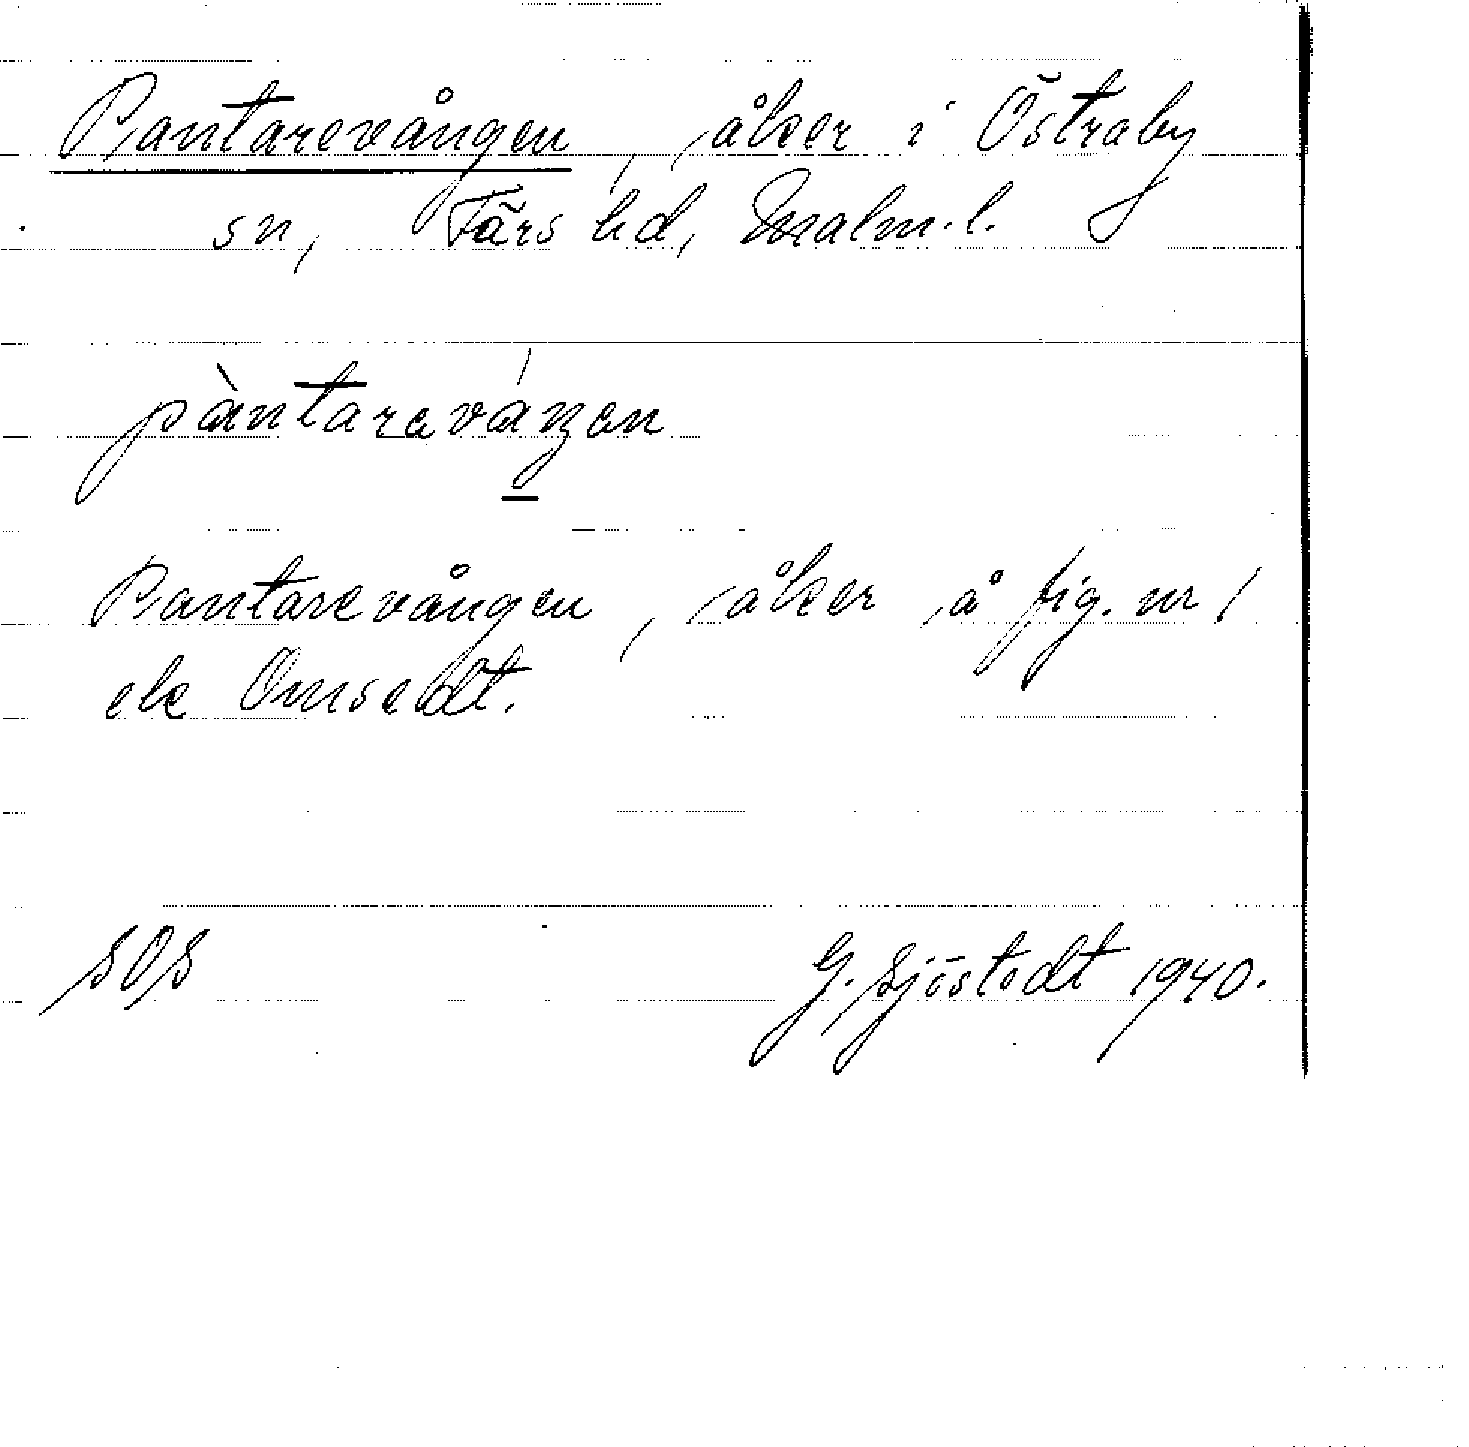 Pantarevången, åker i Östraby
sn, Färs hd, Malm. l.
pàntareváŋen
Pantarevången, åker å fig. nr 1
ek
SOS
G. Sjöstedt 1940.